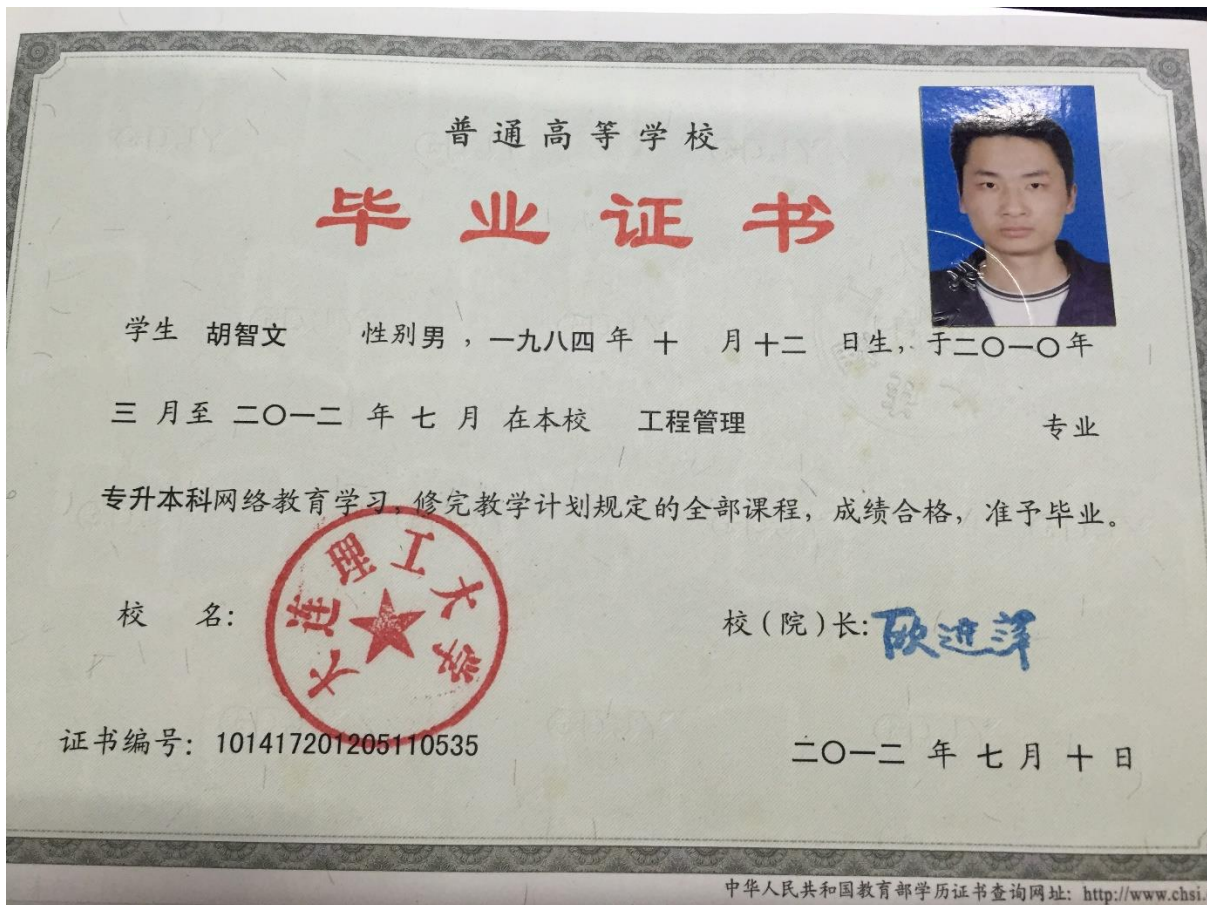 普通高等学校
毕业证书
学生 胡智文 性别男，一九八四年 十 月十二 日生，于二〇一〇年
三 月至 二〇一二 年 七 月 在本校 工程管理 专业
专升本科网络教育学习，修完教学计划规定的全部课程，成绩合格，准予毕业。
大连理工大学
校 名： 校（院）长：欧进萍
证书编号：101417201205110535 二〇一二 年 七 月 十 日
中华人民共和国教育部学历证书查询网址：http://www.chsi.